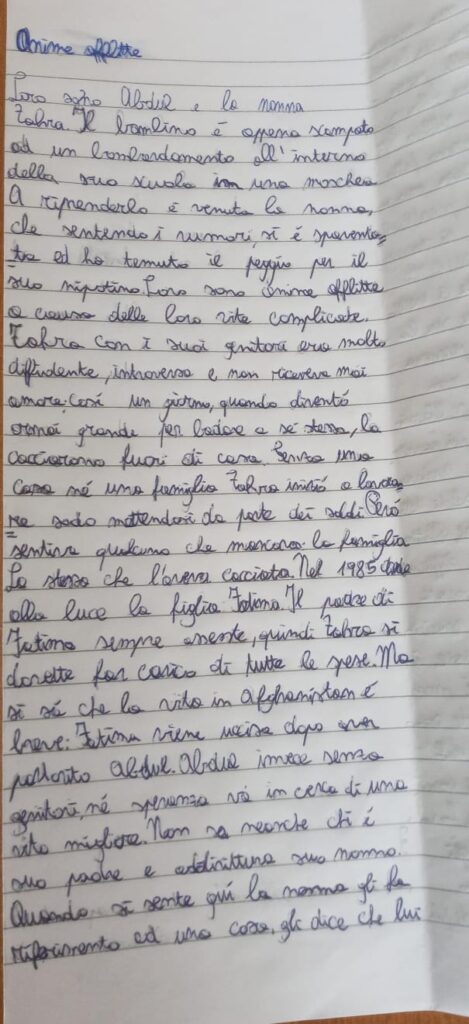 Anime afflitte
Loro sono Abdul e la nonna
Zahra. Il bambino è appena scampato
ad un bombardamento all'interno
della sua scuola in una moschea
A riprenderlo è venuta la nonna,
che sentendo i rumori, si è spaventa=
ta ed ha temuto il peggio per il
suo nipotino. Loro sono anime afflitte
a causa delle loro vite complicate.
Zahra con i suoi genitori era molto
diffidente, introversa e non riceveva mai
amore. Così un giorno, quando diventó
ormai grande per badare a sé stessa, la
cacciarono fuori di casa. Senza una
casa né una famiglia Zahra iniziò a lavora=
re sodo mettendosi da parte dei soldi. Peró
sentiva qualcuno che mancava: la famiglia
La stessa che l'aveva cacciata. Nel 1985 diede
alla luce la figlia Fatima. Il padre di
Fatima sempre assente, quindi Zahra si
dovette far carico di tutte le spese. Ma
si sá che la vita in Afghanistan é
breve: Fatima viene uccisa dopo aver
partorito Abdul. Abdul invece senza
genitori, né speranza vá in cerca di una
vita migliore. Non sa neanche chi è
suo padre e addirittura suo nonno.
Quando si sente giú la nonna gli fa
riferimento ad una cosa, gli dice che lui